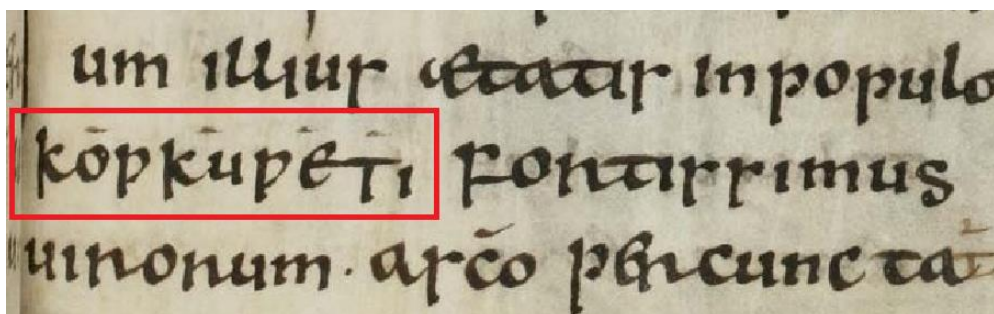 um illius ætatis in populo
kōpkūpēti fortissimus
uirorum. asc̄o per cuncta